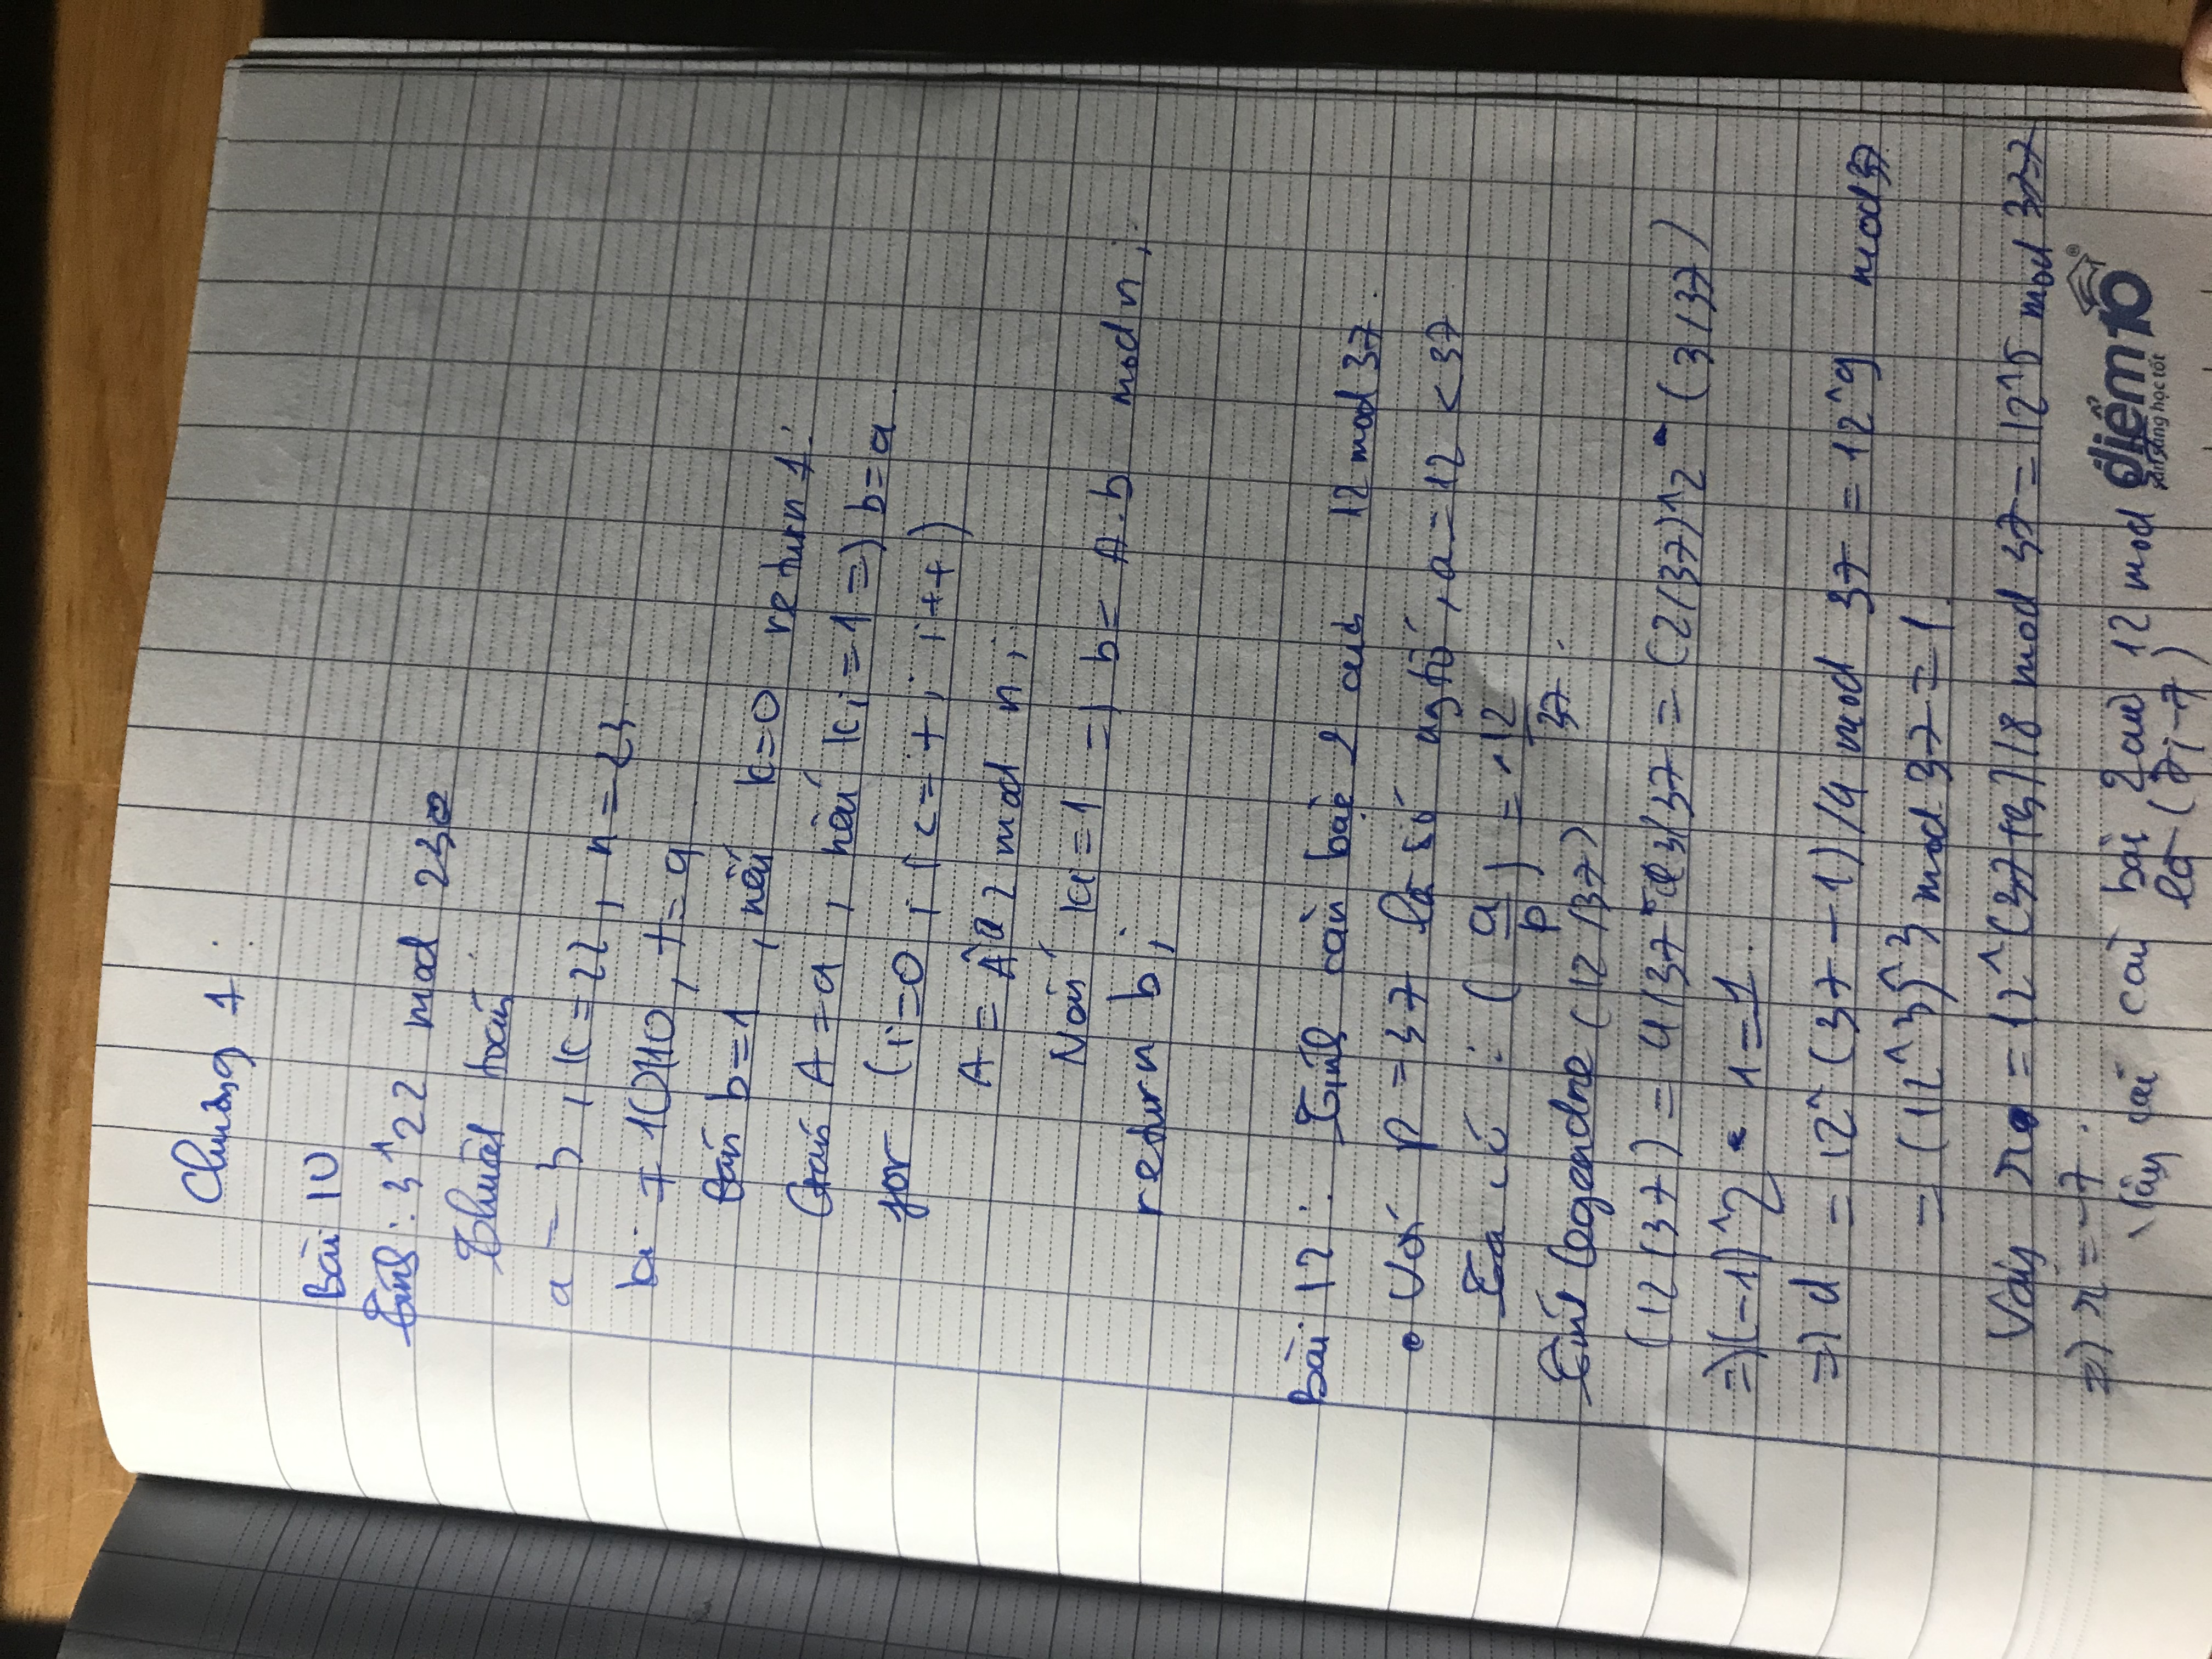 Chương 1:
Bài 10
Tính: 3^22 mod 23
Thuật toán
a = 3, k = 22, n = 23
ki = 10110, t = a
Gán b=1, nếu k=0 return 1;
Gán A = a, nếu ki = 1 => b = a
for (i=0; i<= t; i++)
A = A^2 mod n;
Nếu ki = 1 => b = A.b mod n;
return b;
Bài 12: Tính căn bậc 2 của 12 mod 37.
• Với p = 37 là số ngtố, a = 12 < 37
Ta có: (a/p) = 12/37
Tính legendre (12/37)
(12/37) = 4/37 * 3/37 = (2/37)^2 * (3/37)
=> (-1)^2 * 1 = 1.
=> d = 12^(37-1)/4 mod 37 = 12^9 mod 37
= (12^3)^3 mod 37 = 1.
Vậy r = 12^(37+3)/8 mod 37 = 12^5 mod 37
=> r = -7.
Vậy các căn bậc 2 của 12 mod
là (7; -7)
điểm10
sẵn sàng học tốt